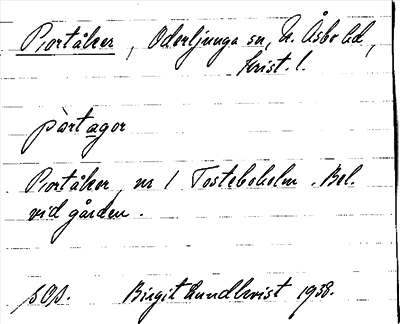 Portåker, Oderljunga sn, N. Åsbo hd,
Krist. l.
pòrtagor
Portåker nr 1 Tosteboholm. Bel.
vid gården.
sOs. Birgit Lundkvist 1938.